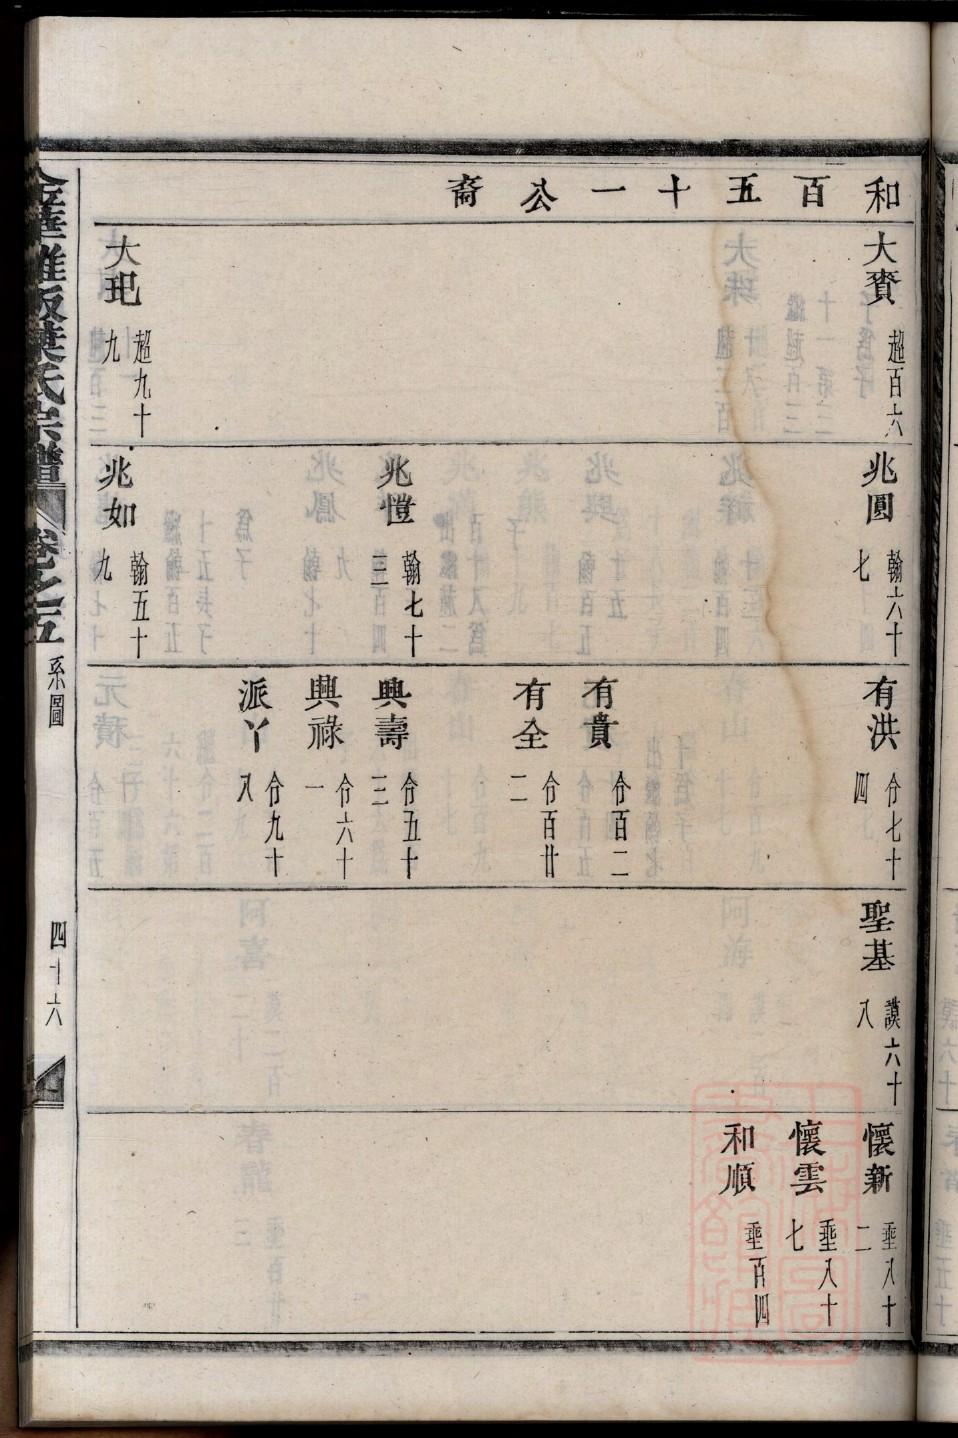 和百五十一公裔
大賚 超百六
大玘 超九十九
兆圓 翰六十七
兆愷 翰七十三
兆如 翰五十九
有洪 㑹七十四
有貴 㑹百二
有全 㑹百廿二
興壽 㑹五十三
興祿 㑹六十一
派丫 㑹九十八
聖基 謨六十八
懷新 垂八十二
懷雲 垂八十七
和順 垂百四
葉氏宗譜
卷之五
系圖
四十六